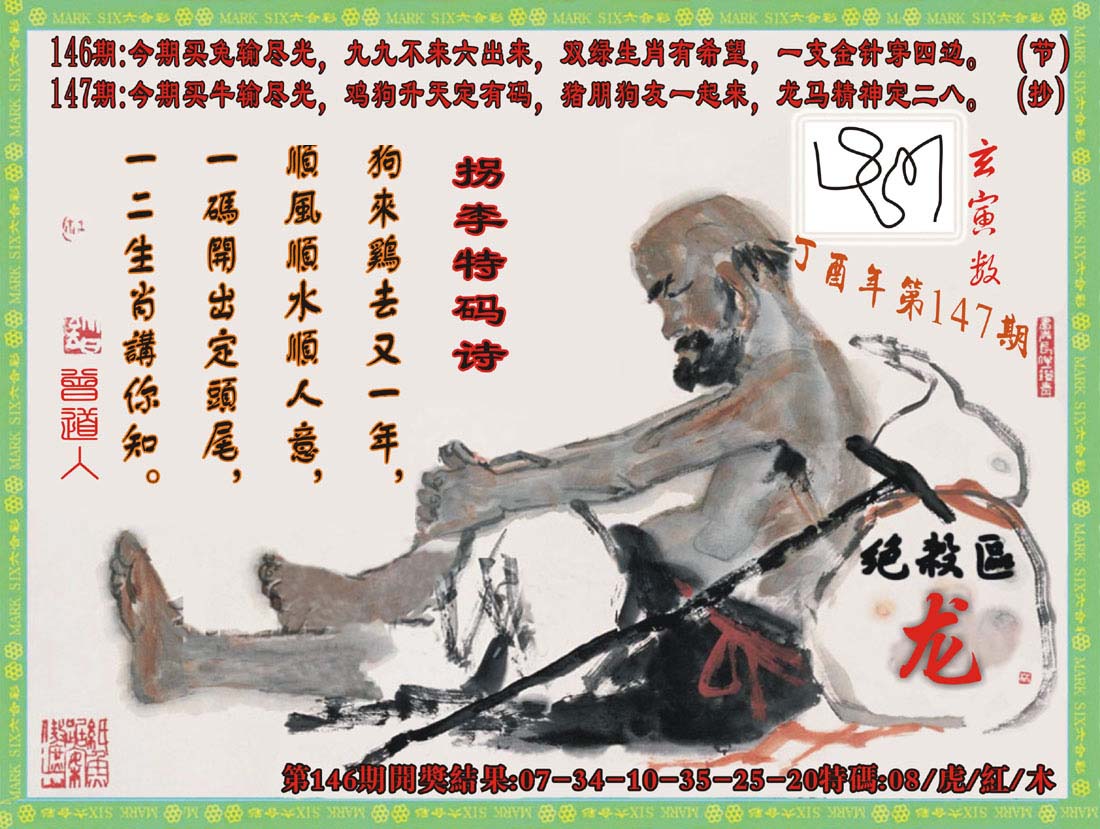 MARK SIX六合彩 MARK SIX六合彩 MARK SIX六合彩 MARK SIX六合彩 MARK SIX六合彩 MARK SIX六合彩
146期:今期买兔输尽光，九九不来六出来，双绿生肖有希望，一支金针穿四边。 (节)
147期:今期买牛输尽光，鸡狗升天定有码，猪朋狗友一起来，龙马精神定二八。 (抄)
玄寅数
丁酉年第147期
拐李特码诗
狗來鷄去又一年，
順風順水順人意，
一碼開出定頭尾，
一二生肖講你知。
曾道人
绝殺區
龙
第146期開獎結果:07-34-10-35-25-20特碼:08/虎/紅/木